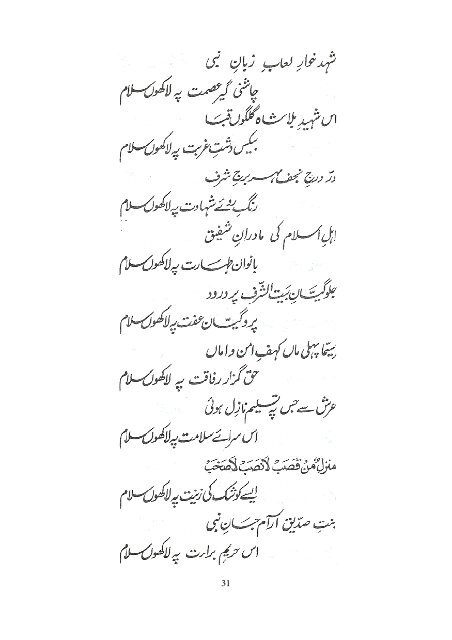 شہد خوارِ لعابِ زبانِ نبی
چاشنی گیر عصمت پہ لاکھوں سلام
اس شہیدِ بلا شاہ گلگوں قبا
بیکسِ دشتِ غربت پہ لاکھوں سلام
درِّ درجِ نجف مہر برجِ شرف
رنگِ روئے شہادت پہ لاکھوں سلام
اہلِ اسلام کی مادرانِ شفیق
بانوانِ طہارت پہ لاکھوں سلام
جلوگیّانِ بیت الشّرف پر درود
پردگیّانِ عفت پہ لاکھوں سلام
سیّما پہلی ماں کہفِ امن و اماں
حق گزارِ رفاقت پہ لاکھوں سلام
عرش سے جس پہ تسلیم نازل ہوئی
اس سرائے سلامت پہ لاکھوں سلام
منزلٌ مّن قصب لا نصب لا صخب
ایسے کوشک کی زینت پہ لاکھوں سلام
بنتِ صدّیق آرامِ جانِ نبی
اس حریمِ برارت پہ لاکھوں سلام
31